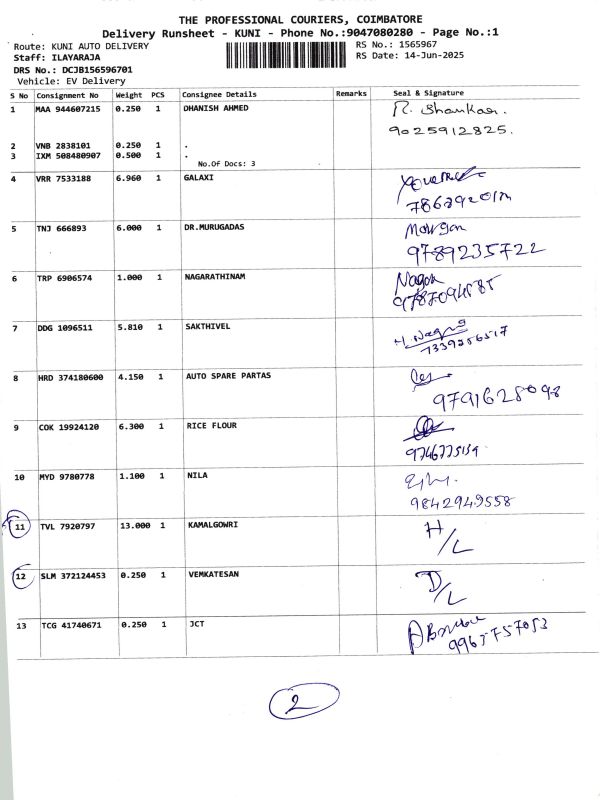 THE PROFESSIONAL COURIERS, COIMBATORE
Delivery Runsheet - KUNI - Phone No.:9047080280 - Page No.:1
Route: KUNI AUTO DELIVERY
RS No.: 1565967
Staff: ILAYARAJA
RS Date: 14-Jun-2025
DRS No.: DCJB156596701
Vehicle: EV Delivery
S No Consignment No Weight PCS Consignee Details Remarks Seal & Signature
1 MAA 944607215 0.250 1 DHANISH AHMED R. Shankar.
9025912825.
2 VNB 2838101 0.250 1 .
3 IXM 508480907 0.500 1 .
No.Of Docs: 3
4 VRR 7533188 6.960 1 GALAXI
5 TNJ 666893 6.000 1 DR.MURUGADAS
9789235722
6 TRP 6906574 1.000 1 NAGARATHINAM
7 DDG 1096511 5.810 1 SAKTHIVEL
8 HRD 374180600 4.150 1 AUTO SPARE PARTAS
9791628098
9 COK 19924120 6.300 1 RICE FLOUR
10 MYD 9780778 1.100 1 NILA
9842949558
11 TVL 7920797 13.000 1 KAMALGOWRI H/L
12 SLM 372124453 0.250 1 VEMKATESAN D/L
13 TCG 41740671 0.250 1 JCT
2